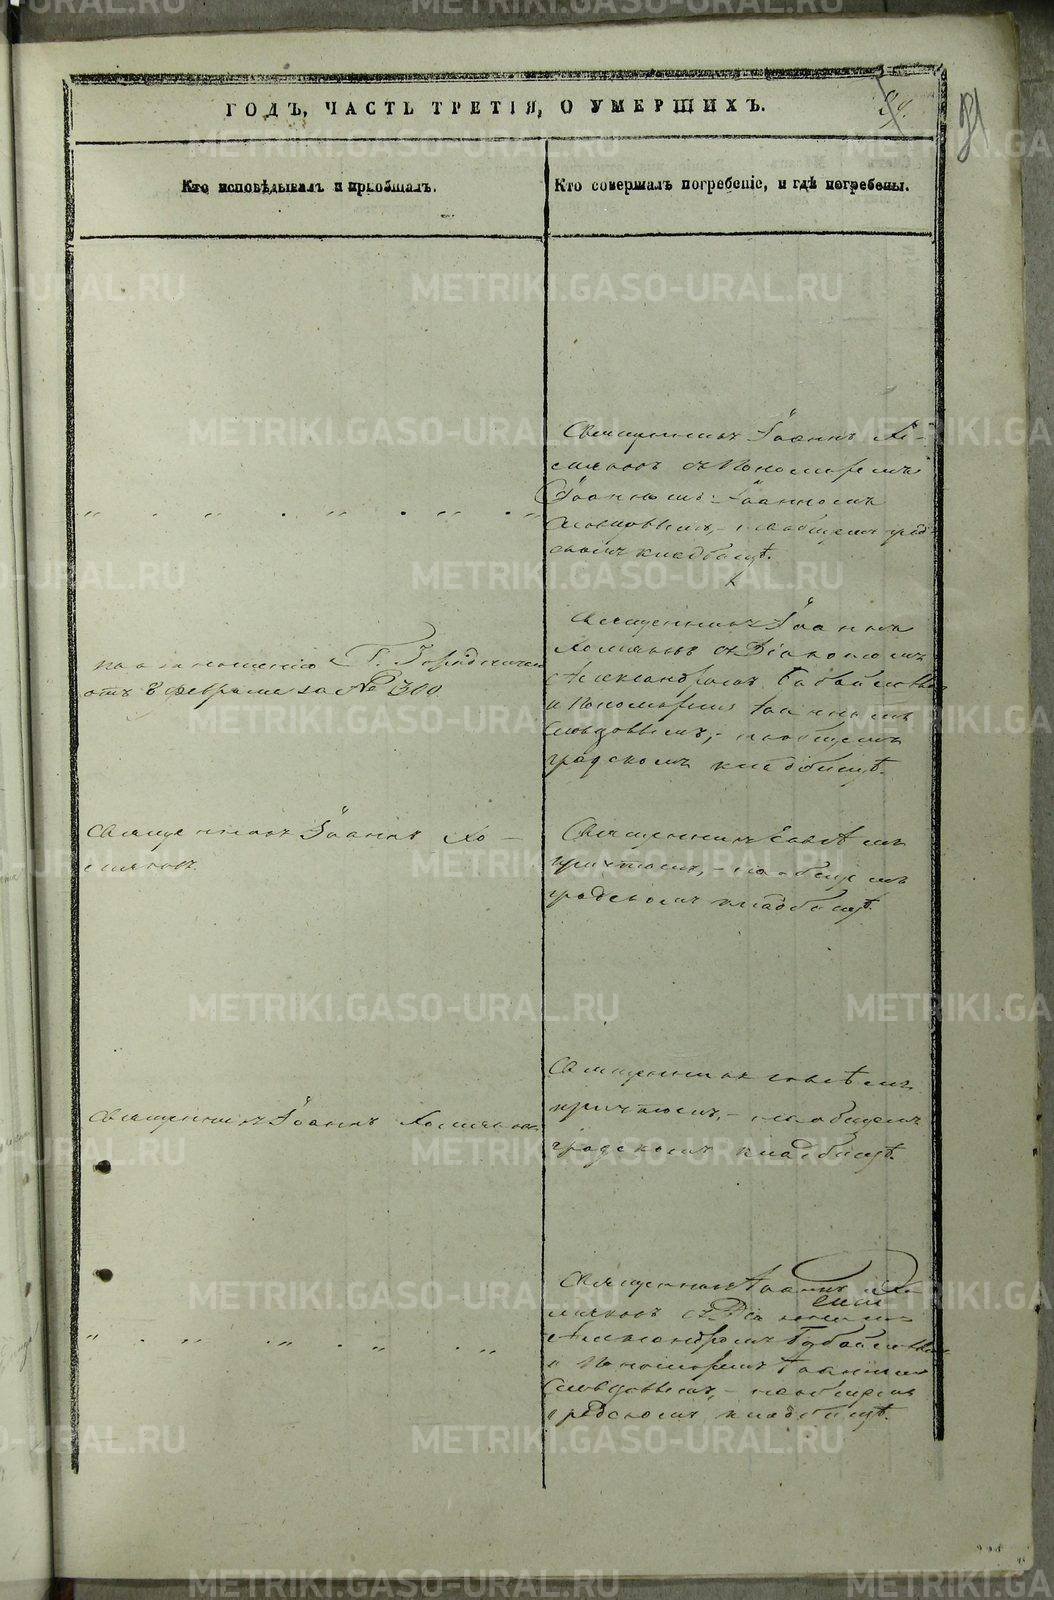 ГОДЪ, ЧАСТЬ ТРЕТІЯ, О УМЕРШИХЪ.
29.
Кто исповѣдывалъ и пріобщалъ.
Кто совершалъ погребеніе, и гдѣ погребены.
Священникъ Іоаннъ Хо-
мяковъ съ Пономаремъ
Іоанномъ
Словцовымъ, - на общемъ град-
скомъ кладбищѣ.
по отношенію Г. Городничаго
отъ 8 февраля за № 300
Священникъ Іоаннъ
Хомяковъ съ Діакономъ
Александромъ
и Пономаремъ Іоанномъ
Словцовымъ, - на общемъ
градскомъ кладбищѣ.
Священникъ Іоаннъ Хо-
мяковъ.
Священникъ съ
причтомъ, - на общемъ
градскомъ кладбищѣ.
Священникъ Іоаннъ Хомяковъ
Священникъ съ
причтомъ, - на общемъ
градскомъ кладбищѣ.
Священникъ Іоаннъ Хо-
мяковъ съ Діакономъ
Александромъ
и Пономаремъ Іоанномъ
Словцовымъ, - на общемъ
градскомъ кладбищѣ.
METRIKI.GASO-URAL.RU